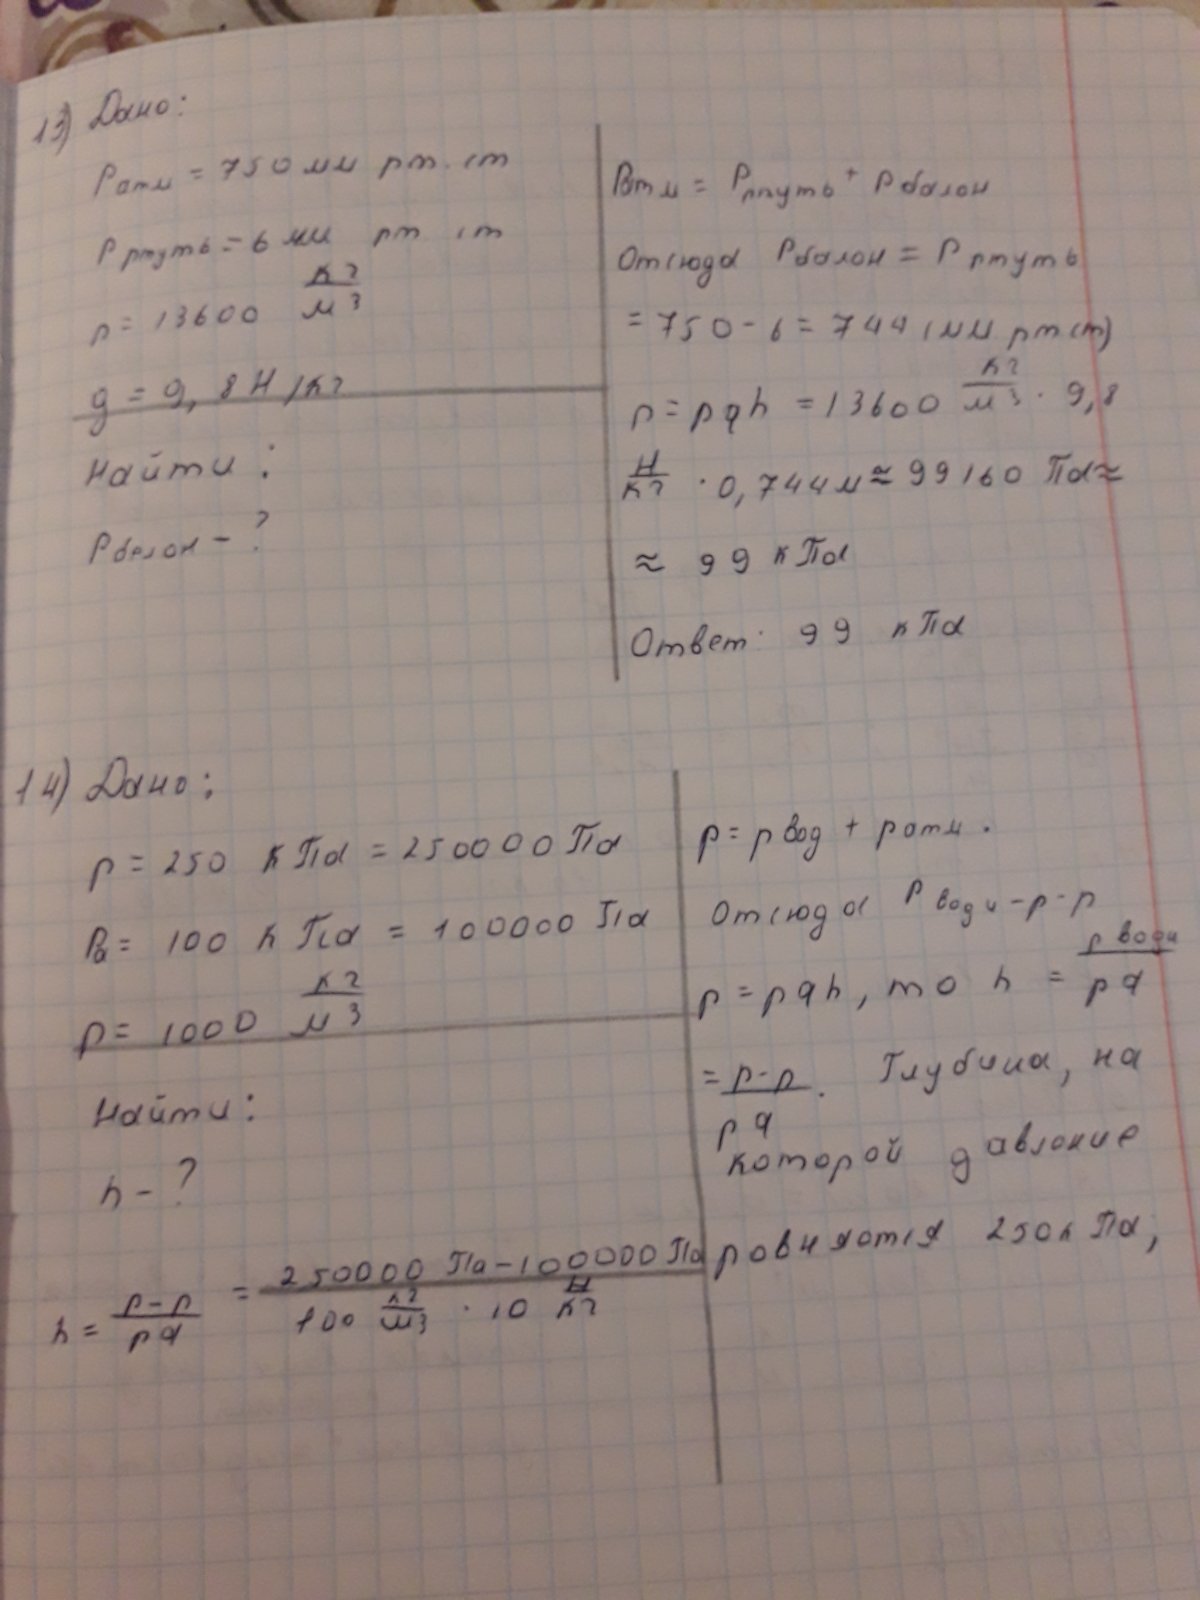 13) Дано:
Pатм = 750 мм рт. ст
P ртуть = 6 мм рт ст
p = 13600 кг/м3
g = 9,8 Н/кг
Найти:
Pбалон - ?
Pатм = Pртуть + Pбалон
Отсюда Pбалон = P ртуть
= 750 - 6 = 744 (мм рт ст)
p = pgh = 13600 кг/м3 · 9,8
Н/кг · 0,744 м ≈ 99160 Па ≈
≈ 99 кПа
Ответ: 99 кПа
14) Дано:
p = 250 кПа = 250000 Па
P0 = 100 кПа = 100000 Па
p = 1000 кг/м3
Найти:
h - ?
p = p вод + p атм.
Отсюда P воды - p - p
p = pgh, то h = p воды/pg
= p-p/pg. Глубина, на
которой давление
h = p-p/pg = 250000 Па - 100000 Па/100 кг/м3 · 10 Н/кг
ровняется 250кПа,